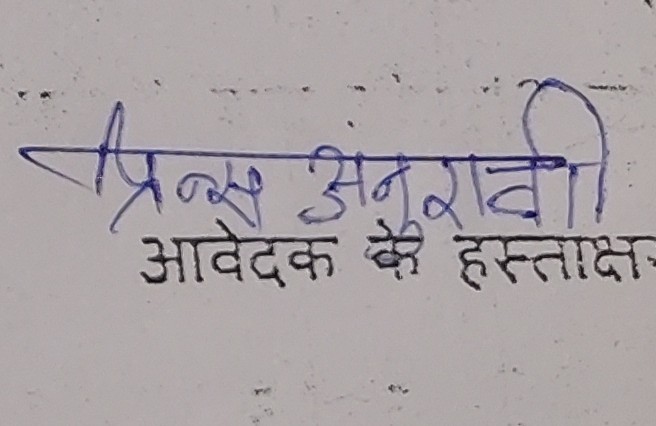 प्रिन्स अनुरागी
आवेदक के हस्ताक्ष